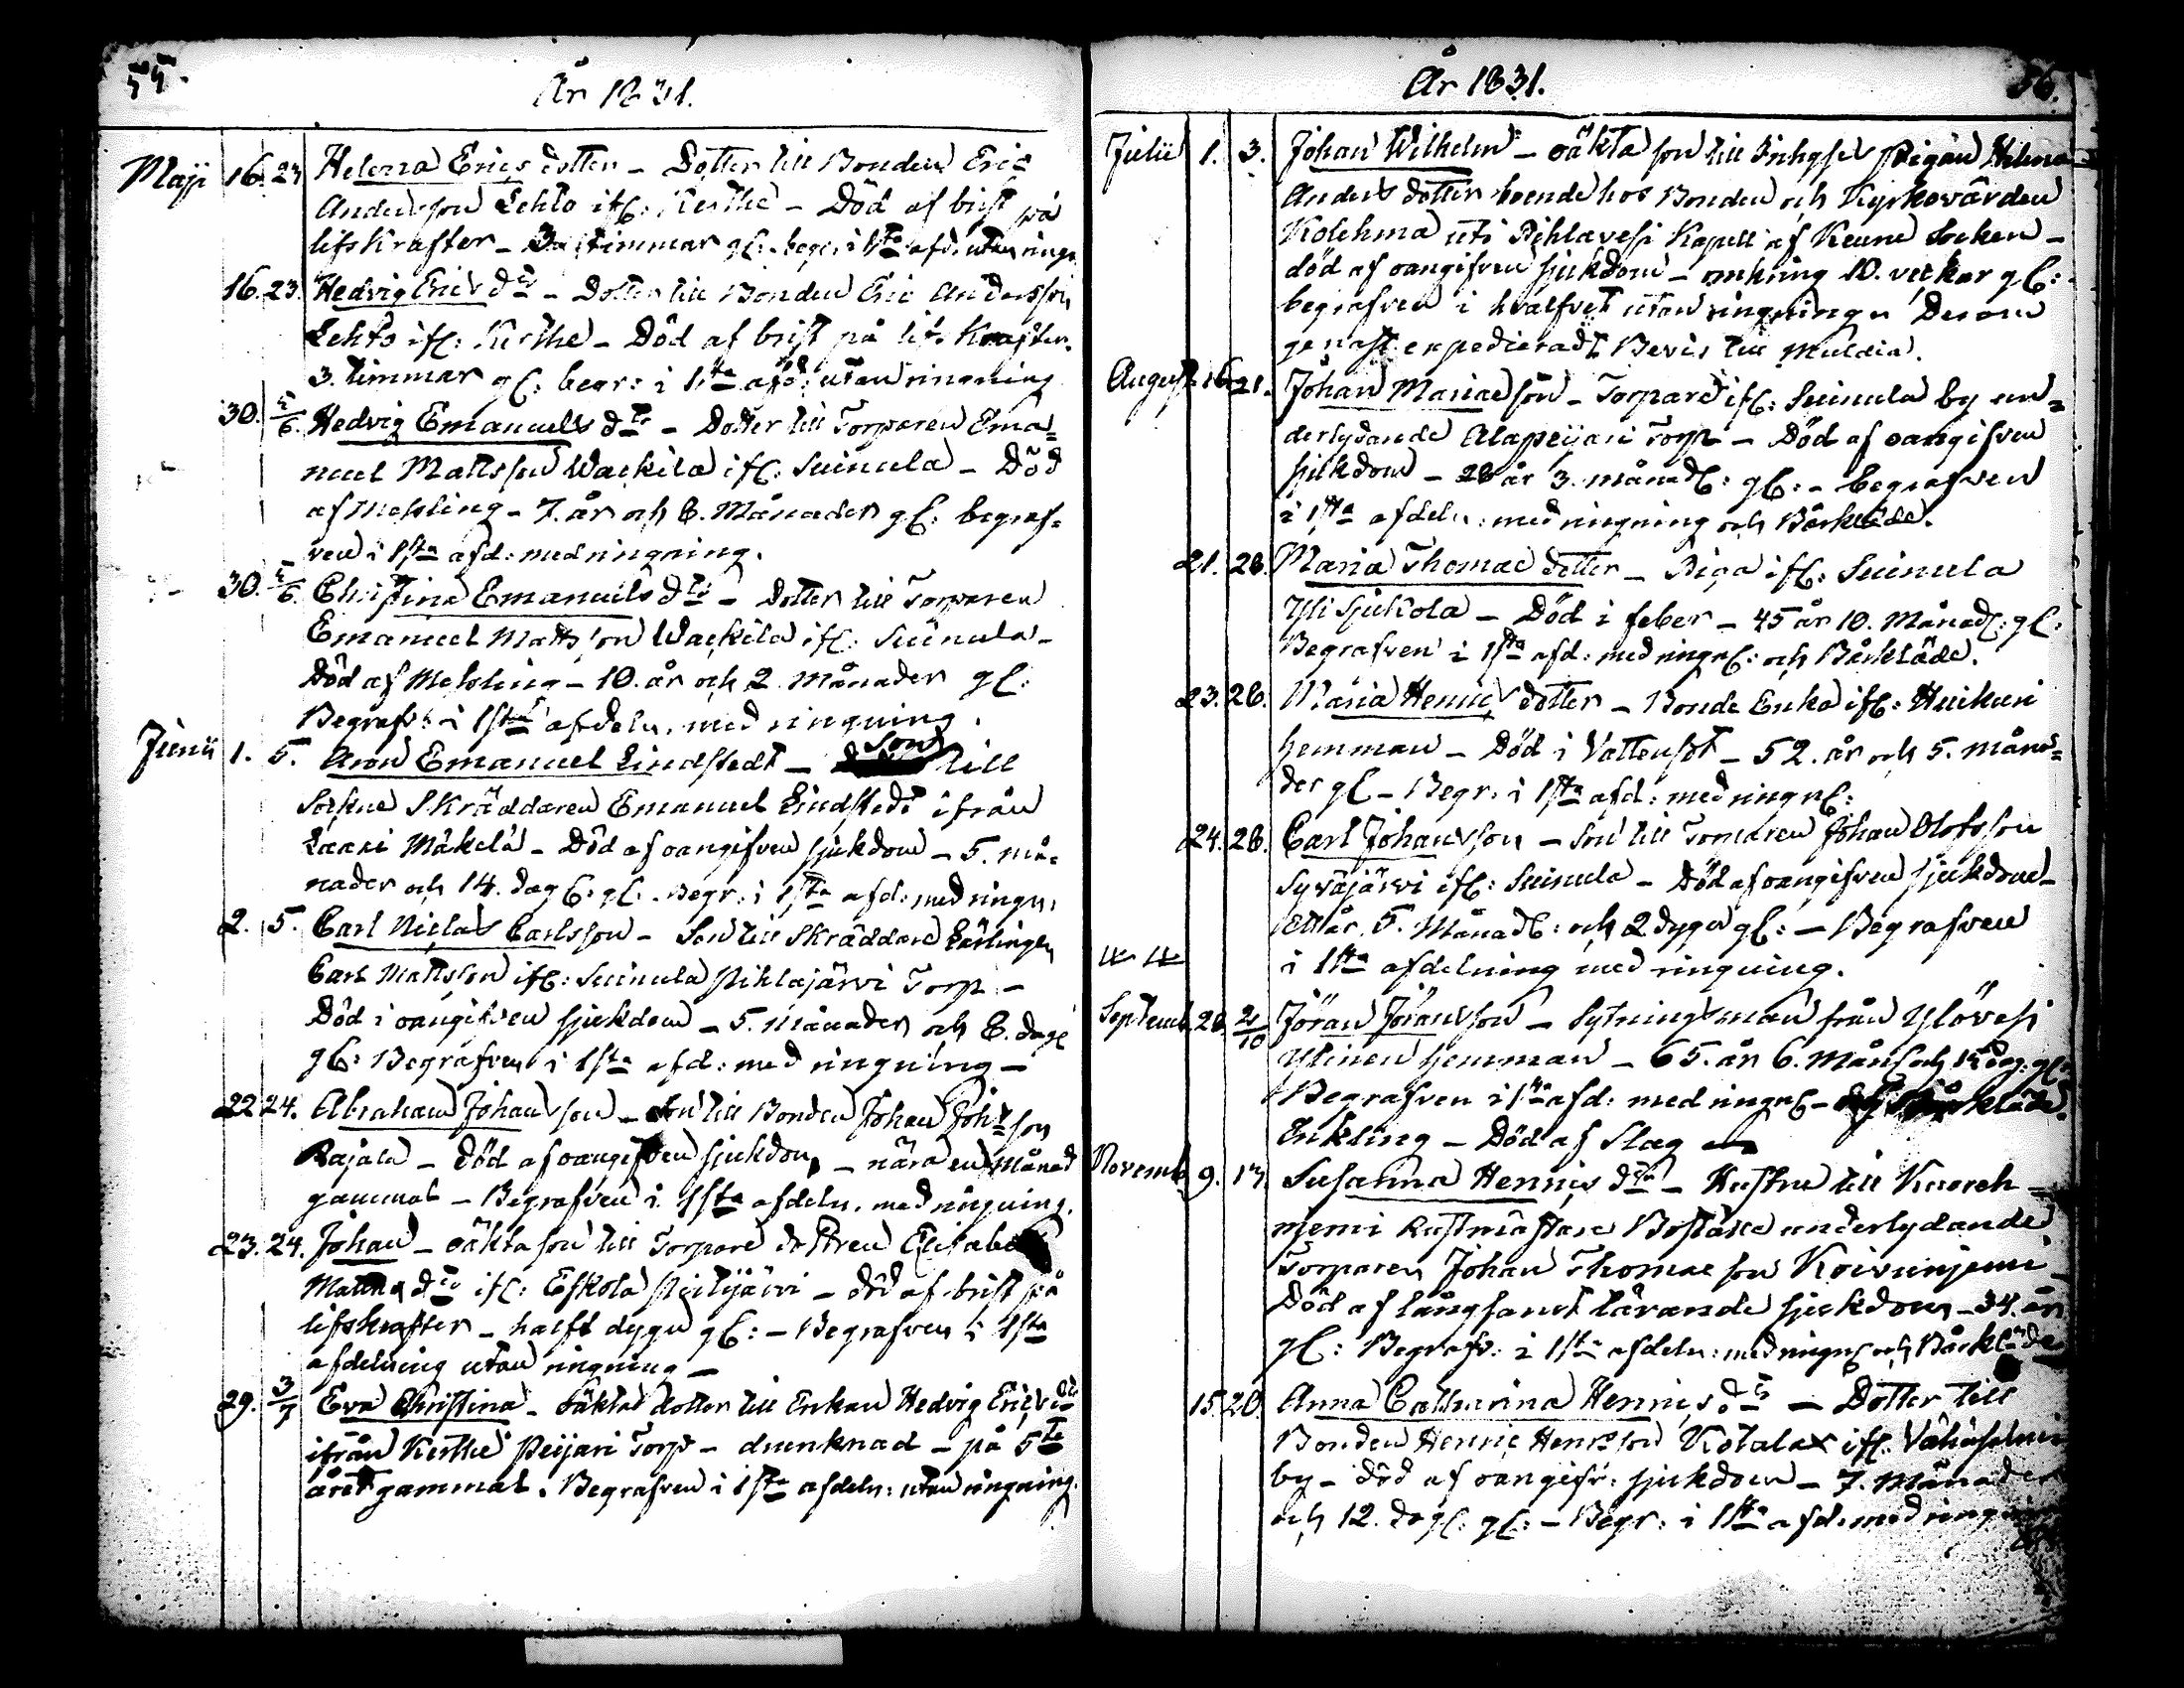 55.
År 1831.
Maji 16. 23. Helena Erics dotter - Dotter till Bonden Eric
Andersson Lehto ifr: Kerthe - Död af brist på
lifskrafter - 3 timmar gl: begr. i 1sta afd. utan ringn.
16. 23. Hedvig Erics dtr - Dotter till Bonden Eric Andersson
Lehto ifr: Kerthe - Död af brist på lifs krafter.
3. timmar gl: begr: i 1sta afd: utan ringning
30. 5/6. Hedvig Emanuels dtr - Dotter till Torparen Ema=
nuel Mattsson Wackila ifr: Suinula - Död
af Messling - 7. år och 8. Månader gl: begraf=
ven i 1sta afd: med ringning.
30. 5/6. Christina Emanuels dtr - Dotter till Torparen
Emanuel Mattsson Wackila ifr: Suinula -
Död af Messling - 10. år och 2. Månader gl:
Begrafv: i 1sta afdeln. med ringning.
Junii 1. 5. Aron Emanuel Lindstedt - Son till
Sockne Skräddaren Emanuel Lindstedt ifrån
Mäkelä - Död af oangifven sjukdom - 5. må=
nader och 14. dag: gl: Begr: i 1sta afd: med ringn.
2. 5. Carl Niclas Carlsson - Son till Skräddare Lärlingen
Carl Mattsson ifr: Suinula Pihlajärvi Torp -
Död i oangifven sjukdom - 5. månader och 8. dag:
gl: Begrafven i 1sta afd: med ringning -
22. 24. Abraham Johansson - Son till Bonden Johan Johsson
Rajala - Död af oangifven sjukdom - nära en Månad
gammal - Begrafven i 1sta afdeln. med ringning.
23. 24. Johan - oäkta son till Torpare dottren
dtr ifr: Eskola - död af brist på
lifskrafter - halft dygn gl: - Begrafven i 1sta
afdelning utan ringning -
29. 3/7 Eva Christina - oäkta dotter till Enkan Hedvig Ericsdtr
ifrån Kerthe Peijari Torp - drunknad - på 5te
året gammal. Begrafven i 1sta afdeln: utan ringning.
56.
År 1831.
Julii 1. 3. Johan Wilhelm - oäkta son till Pigan Helena
Anders dotter boende hos Bonden och Kyrkovärden
Kolehma uti Pihlavesi Kapell af Keuru Socken -
död af oangifven sjukdom - omkring 10. veckor gl:
begrafven i hvalfvet utan ringning. Derom
genast expedieradt Bevis till Muldia.
August 16. 21. Johan Mariae son - Torpare ifr: Suinula by un=
derlydande Alapeijari Torp - Död af oangifven
sjukdom - 28 år 3. månad: gl: - begrafven
i 1sta afdeln: med ringning och Bårkläde.
21. 28. Maria Thomae dotter - Piga ifr: Suinula
Yli Sjukola - Död i feber - 45 år 10. Månad: gl:
Begrafven i 1sta afd: med ringn: och Bårkläde.
23. 28. Maria Henrics dotter - Bonde Enka ifr: Huikuri
hemman - Död i Vattusot - 52. år och 5. måna=
der gl - Begr. i 1sta afd: med ringn:
24. 28. Carl Johansson - Son till Torparen Johan Olofsson
Syväjärvi ifr: Suinula - Död af oangifven sjukdom -
Ett år 5. Månad: och 2 dygn gl: - Begrafven
i 1sta afdelning med ringning.
Septemb. 28. 2/10 Jöran Jöransson - Sytningsman från Ylövesi
Ylinen hemman - 65. år 6. Mån: och dag: gl:
Begrafven i 1sta afd: med ringn: -
Enkling - Död af Slag
Novemb. 9. 13. Susanna Henrics dtr - Hustru till
njemi Rustmästare Boställe underlydande
Torparen Johan Thomae son Koivunjemi
Död af långsamt tärande sjukdom - 34. år
gl: Begrafv: i 1sta afdeln: med ringn: och Bårkläde
15. 20. Anna Catharina Henrics dtr - Dotter till
Bonden Henric Henrsson Kotala ifr:
by - död af oangifv: sjukdom - 7. Månader
och 12. dag: gl: - Begr: i 1sta afd: med ringning